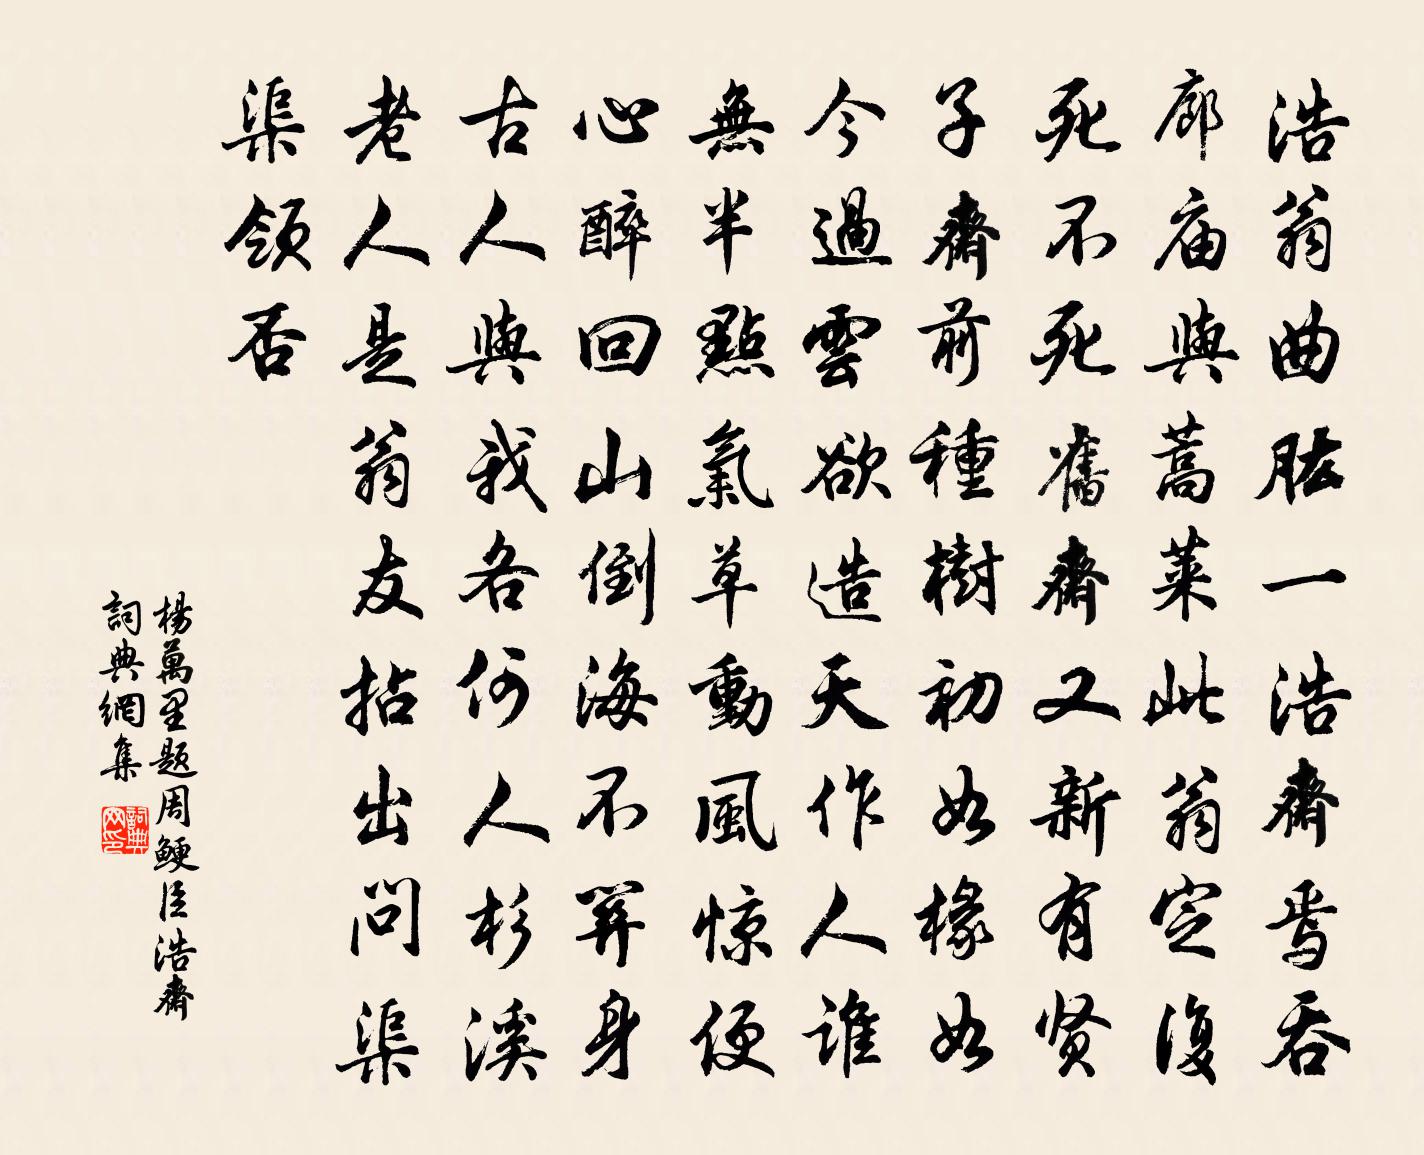 浩翁曲肱一浩齋焉吞
廊庙與蒿萊此翁定復
死不死舊齋又新有贤
子齋前種樹初如椽如
今過雲欲造天作人誰
無半點氣草動風惊便
心醉回山倒海不关身
古人與我各何人杉溪
老人是翁友拈出问渠
渠領否
楊萬里题周鲠臣浩齋
詞典網集
詞典网印